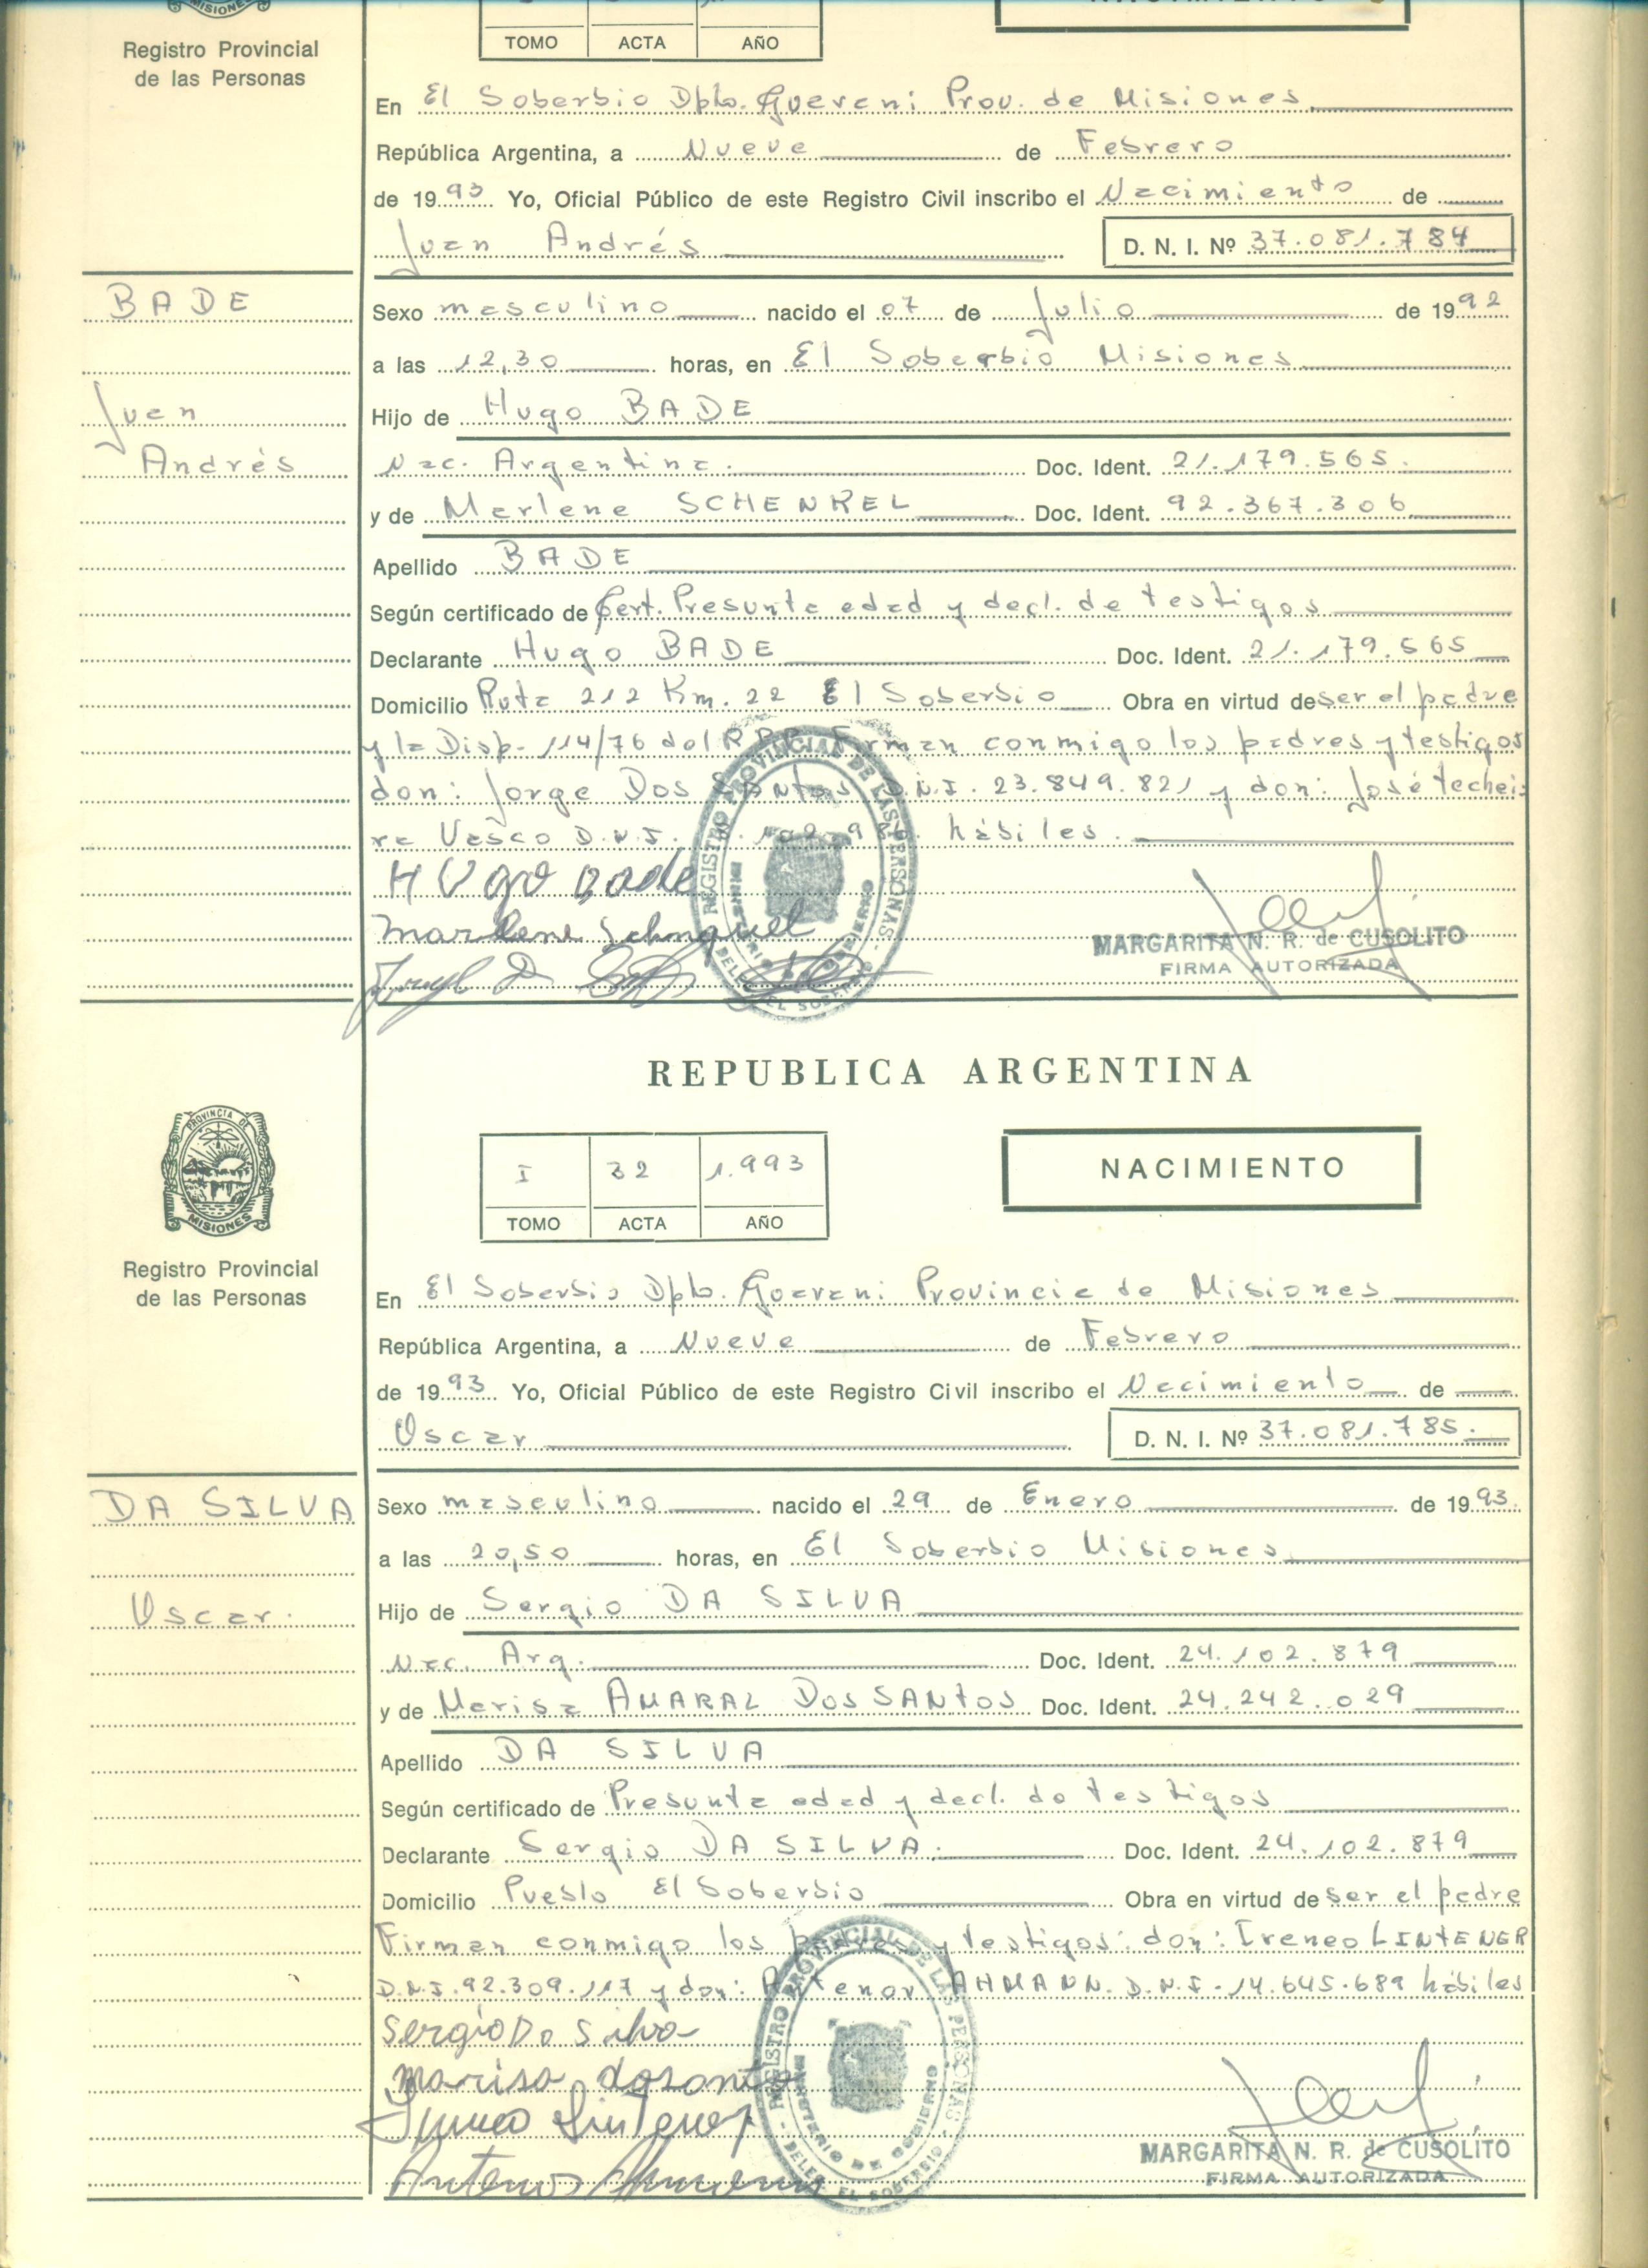 MISIONES
Registro Provincial
de las Personas
TOMO ACTA AÑO
En El Soberbio Dpto. Guarani Prov. de Misiones
República Argentina, a Nueve de Febrero
de 1993 Yo, Oficial Público de este Registro Civil inscribo el Nacimiento de
Juan Andrés D. N. I. Nº 37.081.784
BADE
Juan
Andrés
Sexo masculino nacido el 07 de Julio de 1992
a las 12,30 horas, en El Soberbio Misiones
Hijo de Hugo BADE
Nac. Argentina. Doc. Ident. 21.179.565.
y de Marlene SCHENKEL Doc. Ident. 92.367.306
Apellido BADE
Según certificado de Cert. Presunta edad y decl. de testigos
Declarante Hugo BADE Doc. Ident. 21.179.565
Domicilio Ruta 212 Km. 22 El Soberbio Obra en virtud de ser el padre
y la Disp. 114/76 del R.P.P. Firman conmigo los padres y testigos
don: Jorge Dos Santos D.N.I. 23.849.821 y don: José techei
ra Vasco D.N.I. hábiles.
HUgo Bade
Marlene Schnquel
REGISTRO PROVINCIAL DE LAS PERSONAS
MINISTERIO DE GOBIERNO
DELEG. EL SOBERBIO
MARGARITA N. R. de CUSOLITO
FIRMA AUTORIZADA
REPUBLICA ARGENTINA
PROVINCIA DE
MISIONES
I 32 1.993
TOMO ACTA AÑO
NACIMIENTO
Registro Provincial
de las Personas
En El Soberbio Dpto. Guarani Provincia de Misiones
República Argentina, a Nueve de Febrero
de 1993 Yo, Oficial Público de este Registro Civil inscribo el Nacimiento de
Oscar D. N. I. Nº 37.081.785.
DA SILVA
Oscar.
Sexo masculino nacido el 29 de Enero de 1993.
a las 20,50 horas, en El Soberbio Misiones
Hijo de Sergio DA SILVA
Nac. Arg. Doc. Ident. 24.102.879
y de Marisa AMARAL DOS SANtos Doc. Ident. 24.242.029
Apellido DA SILVA
Según certificado de Presunta edad y decl. de testigos
Declarante Sergio DA SILVA. Doc. Ident. 24.102.879
Domicilio Pueblo El Soberbio Obra en virtud de ser el padre
Firman conmigo los padres y testigos: don: Ireneo LINTENER
D.N.I. 92.309.117 y don: Antenor AHMANN. D.N.I. 14.645.689 hábiles
Sergio Da Silva
Marisa dosanto
Antenor
REGISTRO PROVINCIAL DE LAS PERSONAS
MINISTERIO DE GOBIERNO
DELEG. EL SOBERBIO
MARGARITA N. R. de CUSOLITO
FIRMA AUTORIZADA